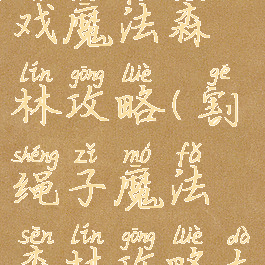 戏魔法森
lín gōng lüè gē
林攻略(割
shéng zǐ mó fǎ
绳子魔法
sēn lín gōng lüè dà
森林攻略大